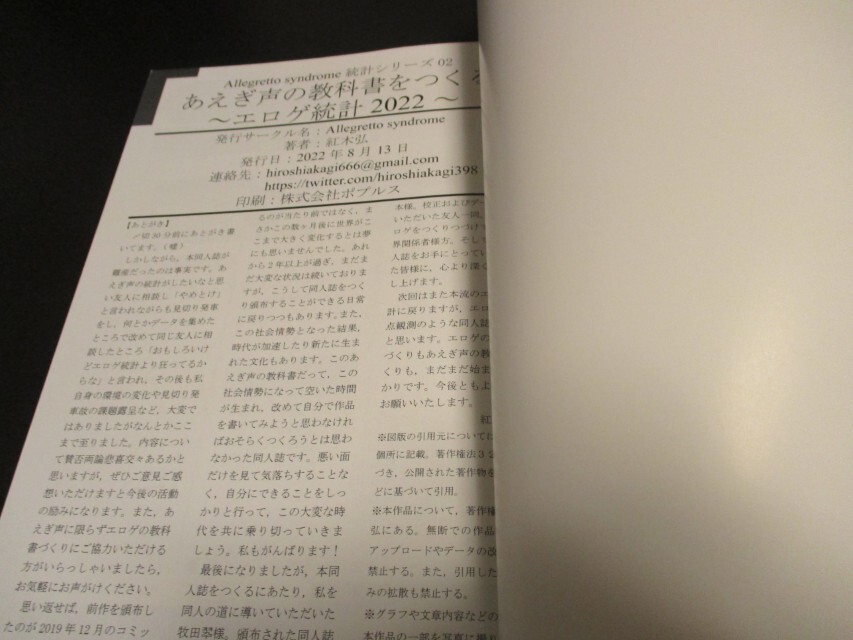 Allegretto syndrome 統計シリーズ02
あえぎ声の教科書をつくる
～エロゲ統計2022～
発行サークル名：Allegretto syndrome
著者：紅木弘
発行日：2022年8月13日
連絡先：hiroshiakagi666@gmail.com
https://twitter.com/hiroshiakagi398
印刷：株式会社ポプルス
【あとがき】
〆切30分前にあとがき書
いてます。（嘘）
しかしながら、本同人誌が
難産だったのは事実です。あ
えぎ声の統計がしたいなと思
い友人に相談し「やめとけ」
と言われながらも見切り発車
をし、何とかデータを集めた
ところで改めて同じ友人に相
談したところ「おもしろいけ
どエロゲ統計より狂ってるか
らな」と言われ、その後も私
自身の環境の変化や見切り発
車故の課題露呈など、大変で
はありましたがなんとかここ
まで至りました。内容につい
て賛否両論悲喜交々あるかと
思いますが、ぜひご意見ご感
想いただけますと今後の活動
の励みになります。また、あ
えぎ声に限らずエロゲの教科
書づくりにご協力いただける
方がいらっしゃいましたら、
お気軽にお声がけください。
思い返せば、前作を頒布し
たのが2019年12月のコミッ
るのが当たり前ではなく、ま
さかこの数ヶ月後に世界がこ
こまで大きく変化するとは夢
にも思いませんでした。あれ
から2年以上が過ぎ、まだま
だ大変な状況は続いておりま
すが、こうして同人誌をつく
り頒布することができる日常
に戻りつつもあります。また、
この社会情勢となった結果、
時代が加速したり新たに生ま
れた文化もあります。このあ
えぎ声の教科書だって、この
社会情勢になって空いた時間
が生まれ、改めて自分で作品
を書いてみようと思わなけれ
ばおそらくつくろうとは思わ
なかった同人誌です。悪い面
だけを見て気落ちすることな
く、自分にできることをしっ
かりと行って、この大変な時
代を共に乗り切っていきま
しょう。私もがんばります！
最後になりましたが、本同
人誌をつくるにあたり、私を
同人の道に導いていただいた
牧田翠様。頒布された同人誌
本様、校正およびデー
いただいた友人一同、
ロゲをつくりつづけ
界関係者様方。そして
人誌をお手にとってい
た皆様に、心より深く
し上げます。
次回はまた本流のエ
計に戻りますが、エロ
点観測のような同人誌
と思います。エロゲの
づくりもあえぎ声の教
くりも、まだまだ始ま
かりです。今後ともよ
お願いいたします。
紅
※図版の引用元については
個所に記載。著作権法32
づき、公開された著作物を
どに基づいて引用。
※本作品について、著作権
弘にある。無断での作品
アップロードやデータの改
禁止する。また、引用した
みの拡散も禁止する。
※グラフや文章内容などの
本作品の一部を写真に撮り